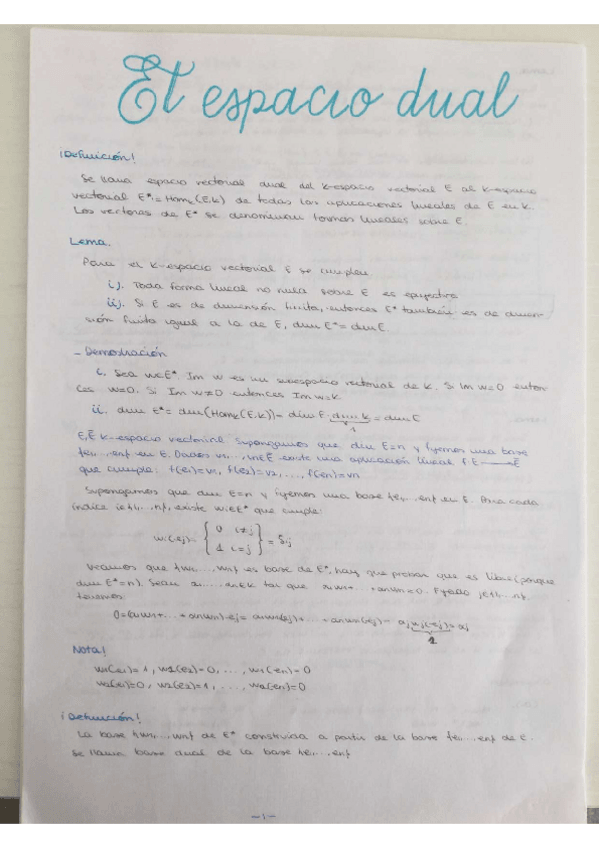 El espacio dual
¡Definición!
Se llama espacio vectorial dual del k-espacio vectorial E al k-espacio
vectorial E*:=Homk(E,k) de todas las aplicaciones lineales de E en k.
Los vectores de E* se denominan formas lineales sobre E.
Lema.
Para el k-espacio vectorial E se cumplen
i). Toda forma lineal no nula sobre E es epiyectiva
ii). Si E es de dimensión finita, entonces E* también es de dimen-
sión finita igual a la de E, dim E*= dim E.
- Demostración
i. Sea w∈E*. Im w es un subespacio vectorial de k. Si Im w=0 enton-
ces w=0. Si Im w≠0 entonces Im w=k
ii. dim E*= dim(Homk(E,k))= dim E·dim k = dim E
1
E,Ē k-espacio vectorial. Supongamos que dim E=n y fijemos una base
{e1,...,en} en E. Dados v1,...,vn∈Ē existe una aplicación lineal f:E→Ē
que cumple: f(e1)=v1, f(e2)=v2,..., f(en)=vn
Supongamos que dim E=n y fijemos una base {e1,...,en} en E. Para cada
índice i∈{1,...,n}, existe wi∈E* que cumple:
wi(ej)= { 0 i≠j
1 i=j } = δij
Veamos que {w1,...,wn} es base de E*, hay que probar que es libre (porque
dim E*=n). Sean a1,...,an∈k tal que a1w1+...+anwn=0. Fijado j∈{1,...,n},
tenemos
0=(a1w1+...+anwn)·ej= a1w1(ej)+...+anwn(ej)= ajwj(ej)=aj
1
Nota!
w1(e1)=1, w1(e2)=0, ..., w1(en)=0
w2(e1)=0, w2(e2)=1, ..., w2(en)=0
¡Definición!
La base {w1,...,wn} de E* construida a partir de la base {e1,...,en} de E.
Se llama base dual de la base {e1,...,en}
-1-